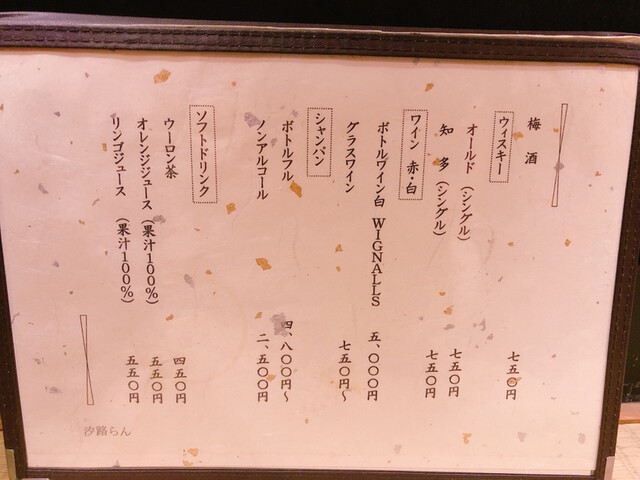 梅酒 七五〇円
ウィスキー
オールド(シングル) 七五〇円
知多(シングル) 七五〇円
ワイン 赤・白
ボトルワイン白 WIGNALLS 五、〇〇〇円
グラスワイン 七五〇円～
シャンパン
ボトルフル 四、八〇〇円～
ノンアルコール 二、五〇〇円
ソフトドリンク
ウーロン茶 四五〇円
オレンジジュース(果汁100%) 五五〇円
リンゴジュース(果汁100%) 五五〇円
汐路らん